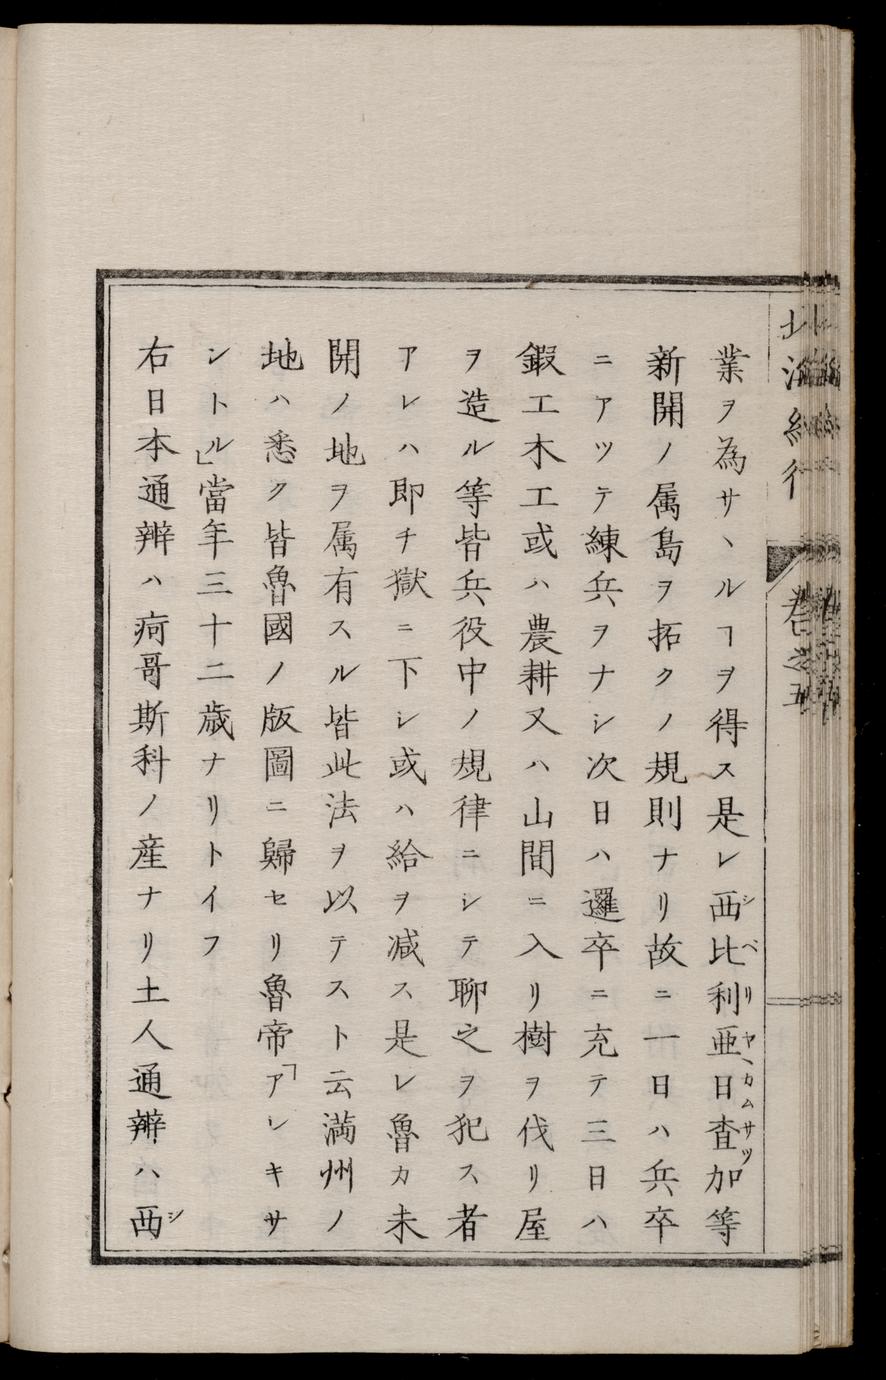 北海紀行
巻之五
業ヲ為サヽルヿヲ得ス是レ西比利亜日査加等
シベリヤ、カムサツ
新開ノ属島ヲ拓クノ規則ナリ故ニ一日ハ兵卒
ニアツテ練兵ヲナシ次日ハ邏卒ニ充テ三日ハ
鍜工木工或ハ農耕又ハ山間ニ入リ樹ヲ伐リ屋
ヲ造ル等皆兵役中ノ規律ニシテ聊之ヲ犯ス者
アレハ即チ獄ニ下シ或ハ給ヲ減ス是レ魯カ未
開ノ地ヲ属有スル皆此法ヲ以テスト云満州ノ
地ハ悉ク皆魯國ノ版圖ニ歸セリ魯帝「アレキサ
ントル」當年三十二歳ナリトイフ
右日本通辨ハ疴哥斯科ノ産ナリ土人通辨ハ西
シ